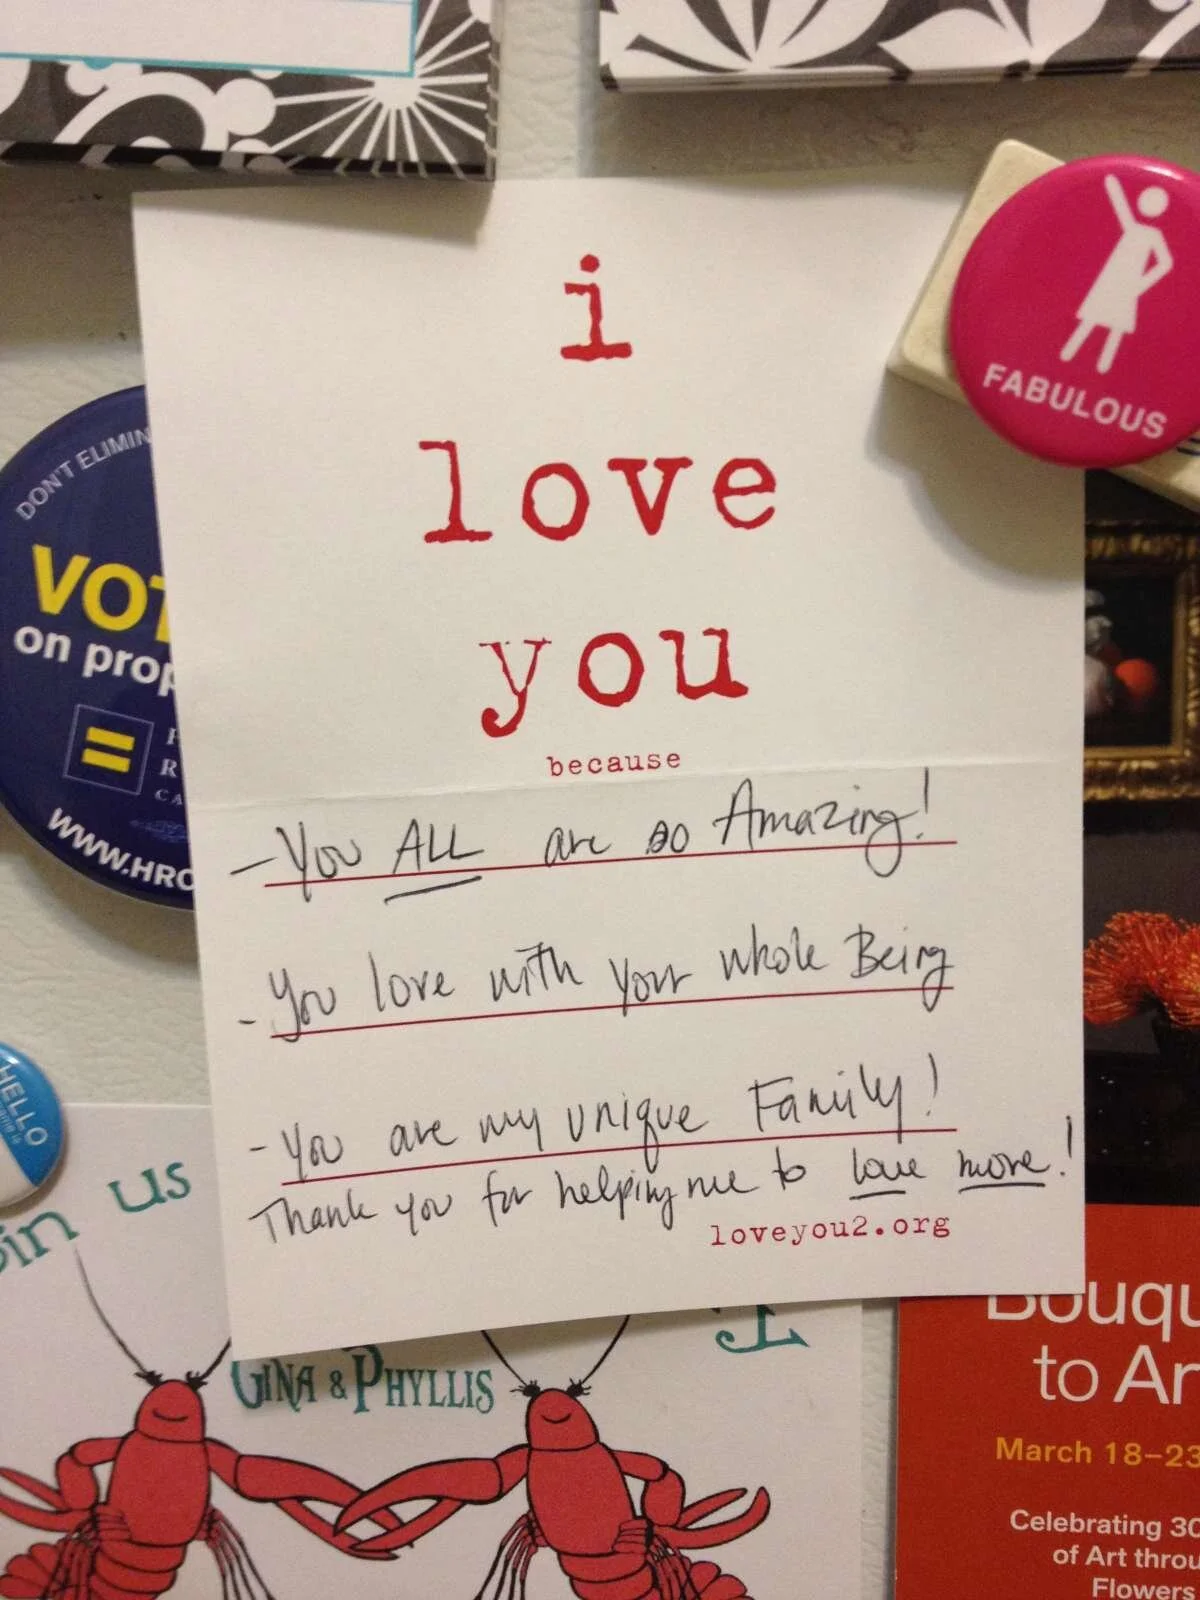 i
love
you
because
- You ALL are so Amazing!
- You love with your whole Being
- You are my unique Family!
Thank you for helping me to love more!
loveyou2.org
FABULOUS
DON'T
VOT
on prop
=
R
CA
WWW.HRC
HELLO
us
GINA & PHYLLIS
Bouqu
to Ar
March 18–23
Celebrating 30
of Art throu
Flowers